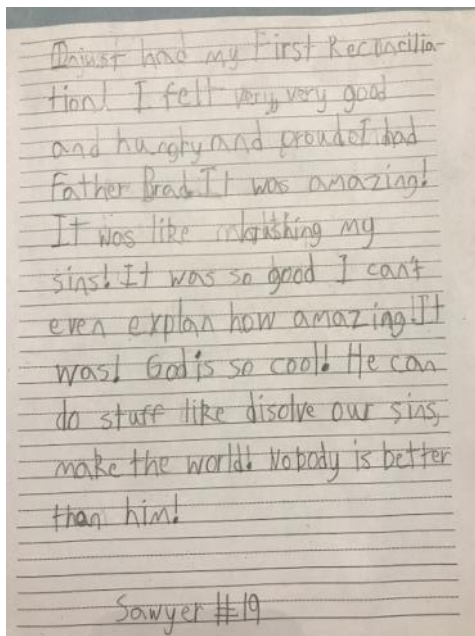 I just had my First Reconcilia-
tion! I felt very, very good
and hungry and proud. I had
Father Brad. It was amazing!
It was like my
sins! It was so good I can't
even explan how amazing! It
was! God is so cool! He can
do stuff like disolve our sins,
make the world! Nobody is better
than him!
Sawyer #19